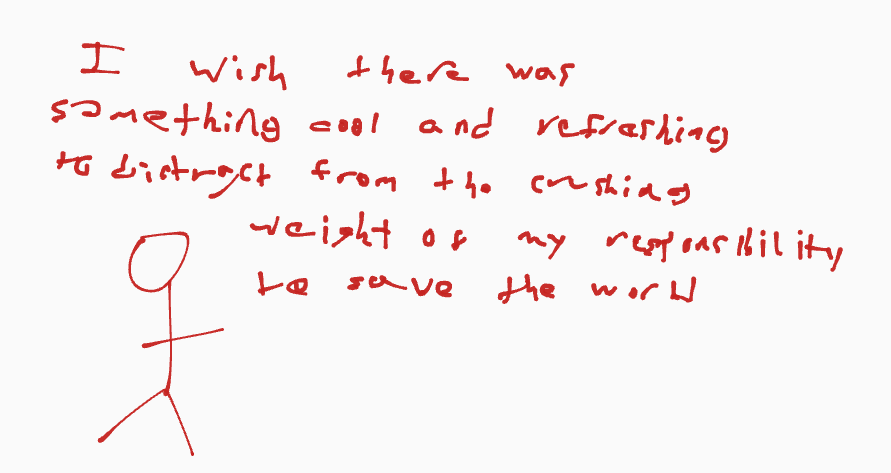 I wish there was
something cool and refreshing
to distract from the crushing
weight of my responsibility
to save the world